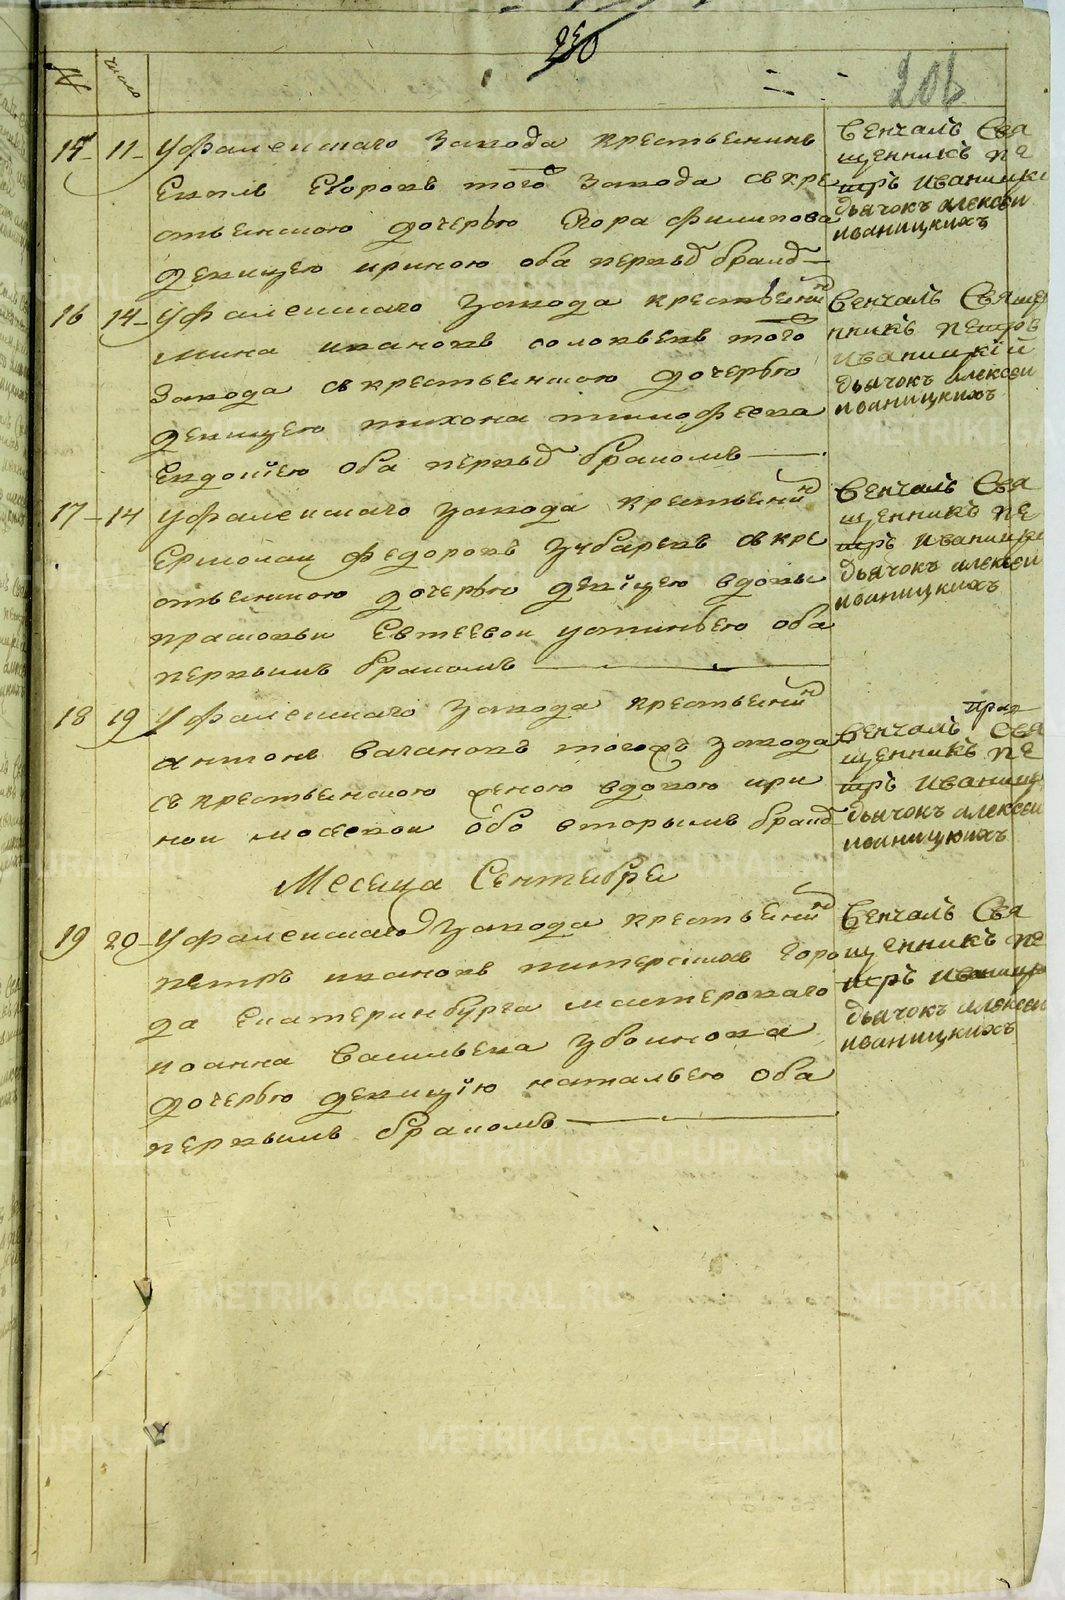 250
206
№ число
15 11 Уфалейскаго Завода крестьянинъ
того Завода съ кре
стьянскою дочерью Егора Филипова
девицею ириною оба первыъ бракъ
Венчалъ Свя
щенникъ пе
тръ иваницки
дьячокъ алексеи
иваницкихъ
16 14 Уфалейскаго завода крестьянинъ
мина ивановъ соловьевъ того
Завода съ крестьянскою дочерью
девицею тихона тимофеева
Евдокіею оба первыъ бракомъ
Венчалъ Священ
никъ петръ
иваницкій
дьячокъ алексеи
иваницкихъ
17 14 Уфалейскаго завода крестьянинъ
Ермолаи Федоровъ Зубаревъ съ кре
стьянскою дочерью девіцею вдовы
прасковьи Евтеевои устиньею оба
первымъ бракомъ
Венчалъ Свя
щенникъ пе
тръ иваницки
дьячокъ алексеи
иваницкихъ
18 19 Уфалейскаго завода крестьянинъ
антонъ Вагановъ тогожъ завода
съ крестьянскою женою вдовою ири
нои мосеевои обо вторымъ бракъ
Венчалъ Свя
щенникъ пе
тръ иваницки
дьячокъ алексеи
иваницкихъ
Месеца Сентебре
19 20 Уфалейскаго завода крестьянинъ
петръ ивановъ питерскихъ горо
да Екатеринбурга мастероваго
иоанна Васильева Убоинова
дочерью девицію натальею оба
первымъ бракомъ
Венчалъ Свя
щенникъ пе
тръ иваницки
дьячокъ алексеи
иваницкихъ
METRIKI.GASO-URAL.RU